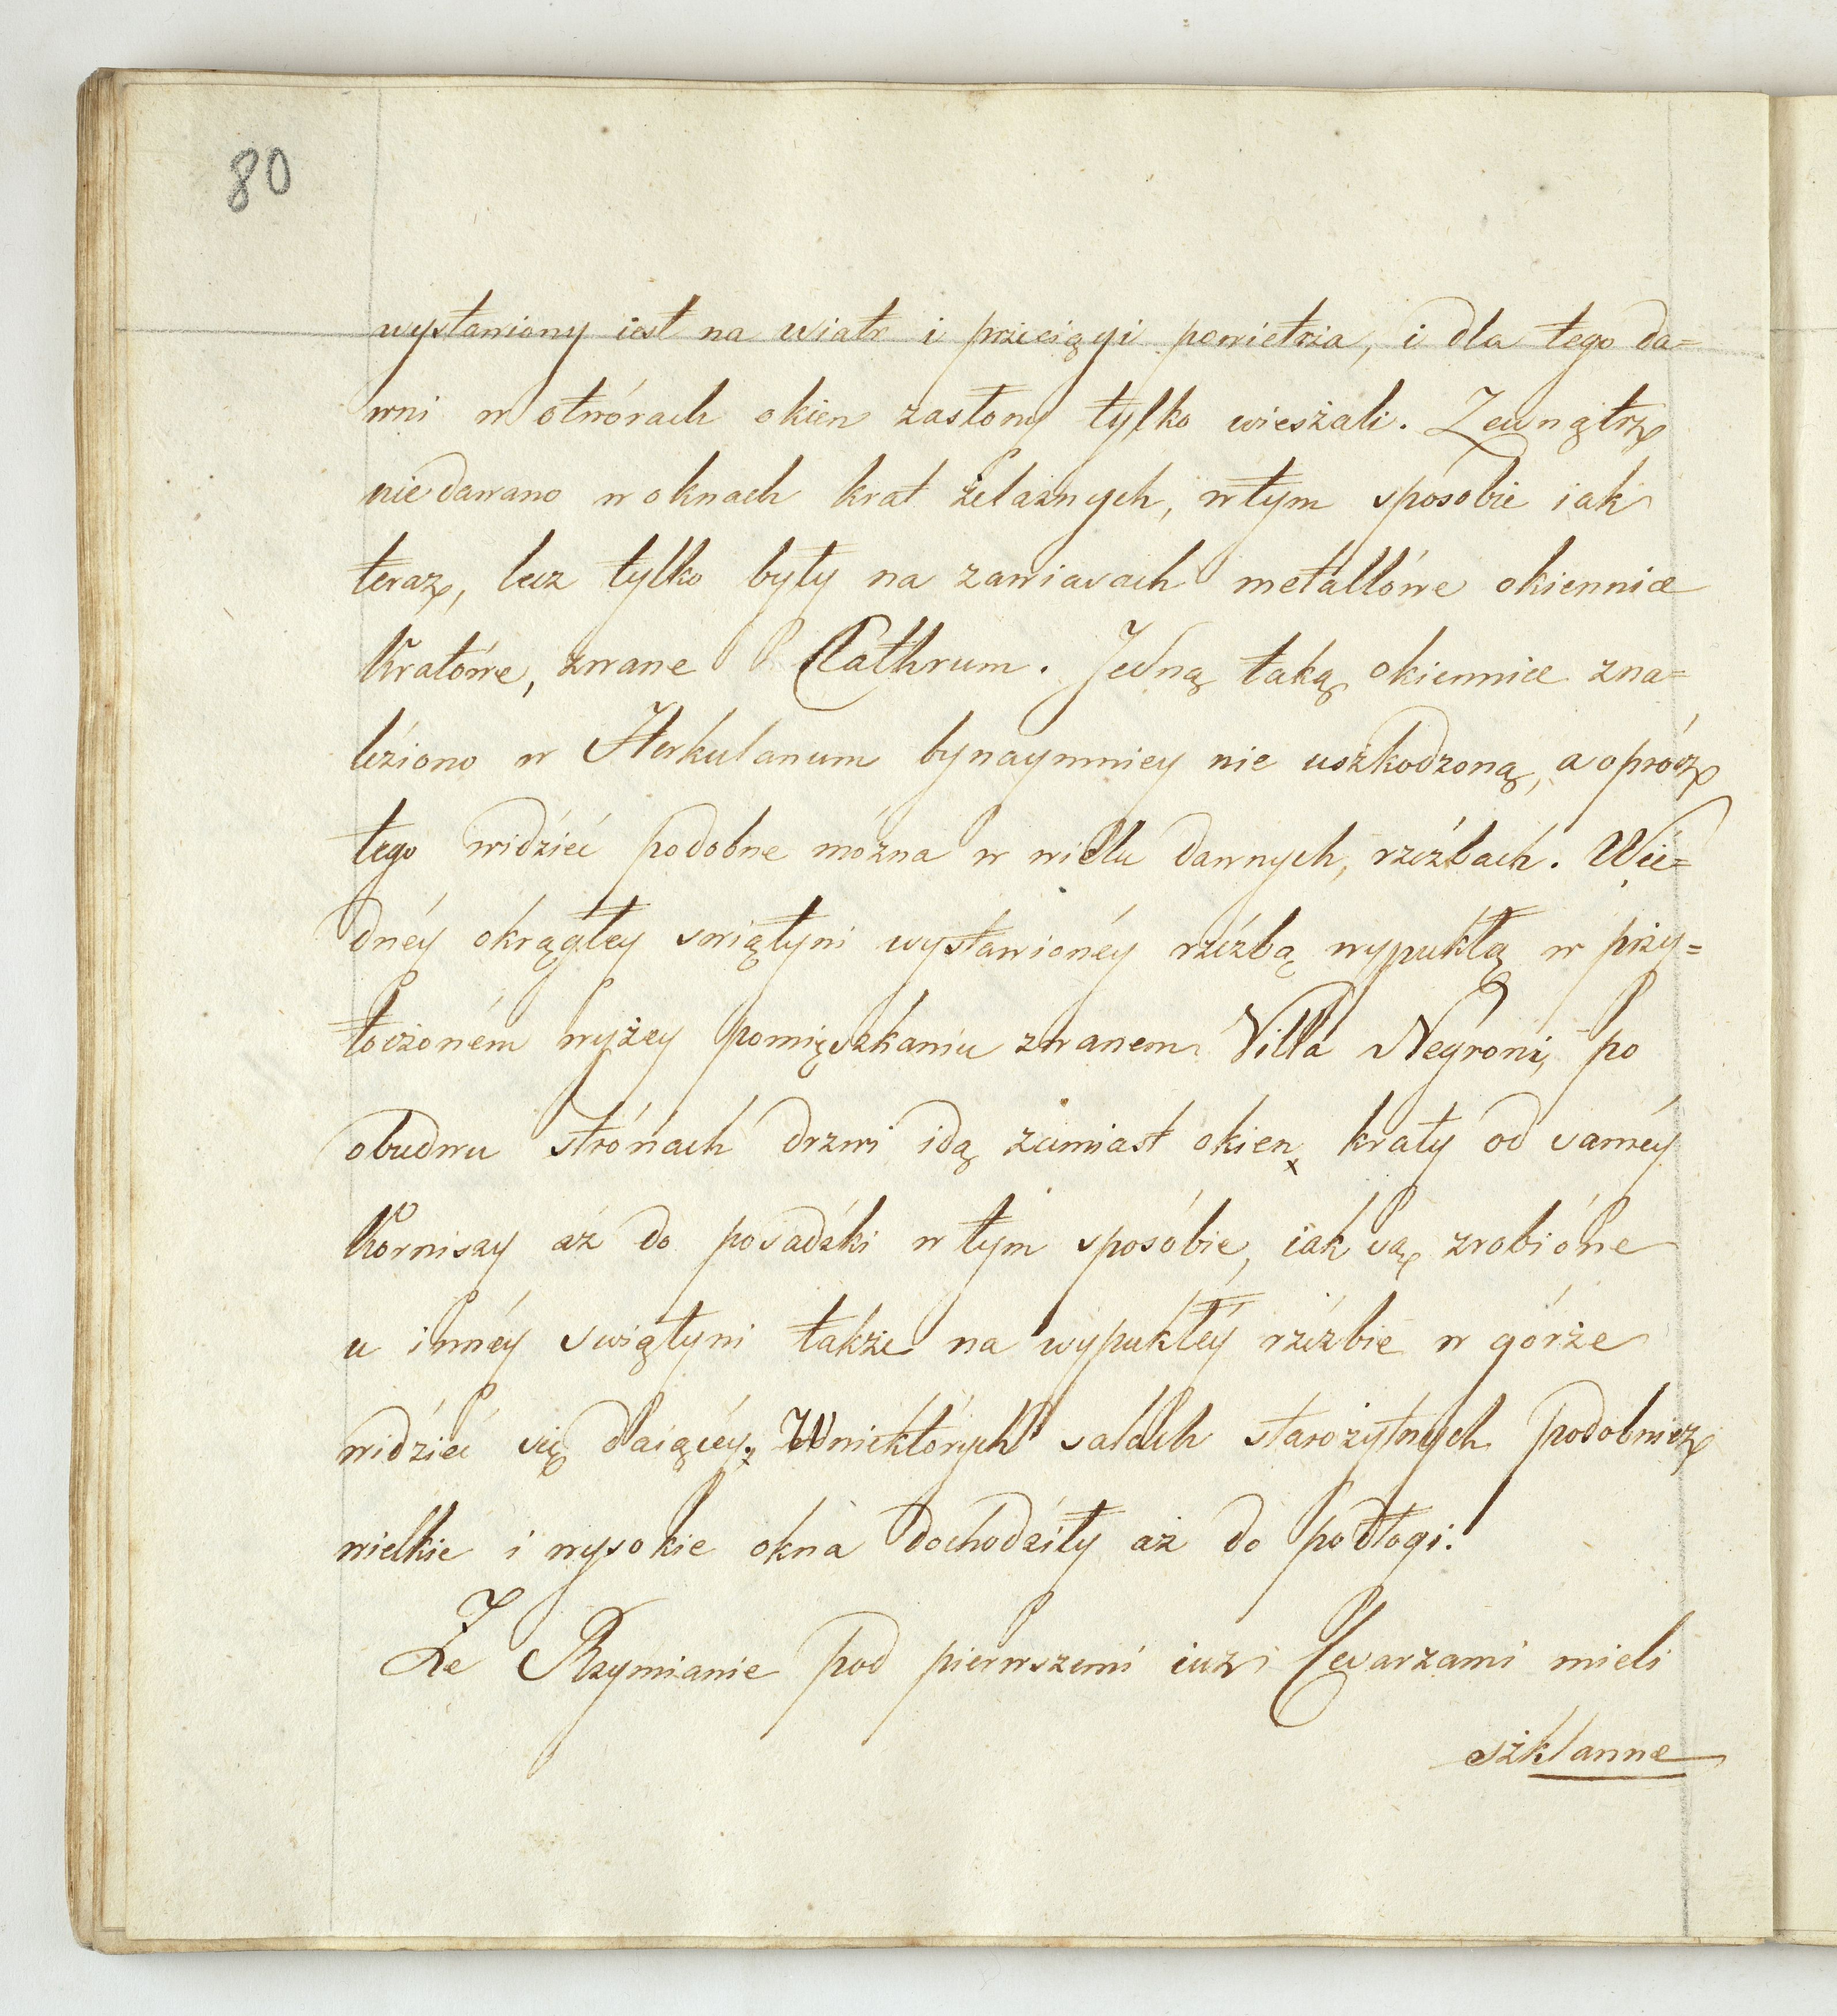 80
wystawiony iest na wiatr i przeciągi powietrza, i dla tego da=
wni w otwórach okien zasłony tylko wieszali. Zewnątrz
nie dawano w oknach krat żelaznych, w tym sposobie iak
teraz, lecz tylko były na zawiasach metallówe okiennice
kratówe, zwane Clathrum. Jedną taką okiennice zna=
leziono w Herkulanum bynaymniey nie uszkodzoną, a oprócz
tego widzieć podobne można w wielu dawnych, rzeźbach. W ie=
dnéy okrągłey swiątyni wystawionéy rzeźbą wypukłą w przy=
toczoném wyżey pomięszkaniu zwanem Villa Negroni, po
obudwu strónach drzwi idą zamiast okien kraty od saméy
korniszy aż do posadzki w tym sposóbie, iak są zrobióne
u innéy swiątyni także na wypukłéy rzeźbie w górze
widzieć się daiącéy. W niektórych salach starożytnych podobnież
wielkie i wysokie okna dochodziły aż do podłogi.
Że Rzymianie pod pierwszemi iuż Cesarzami mieli
szklanne